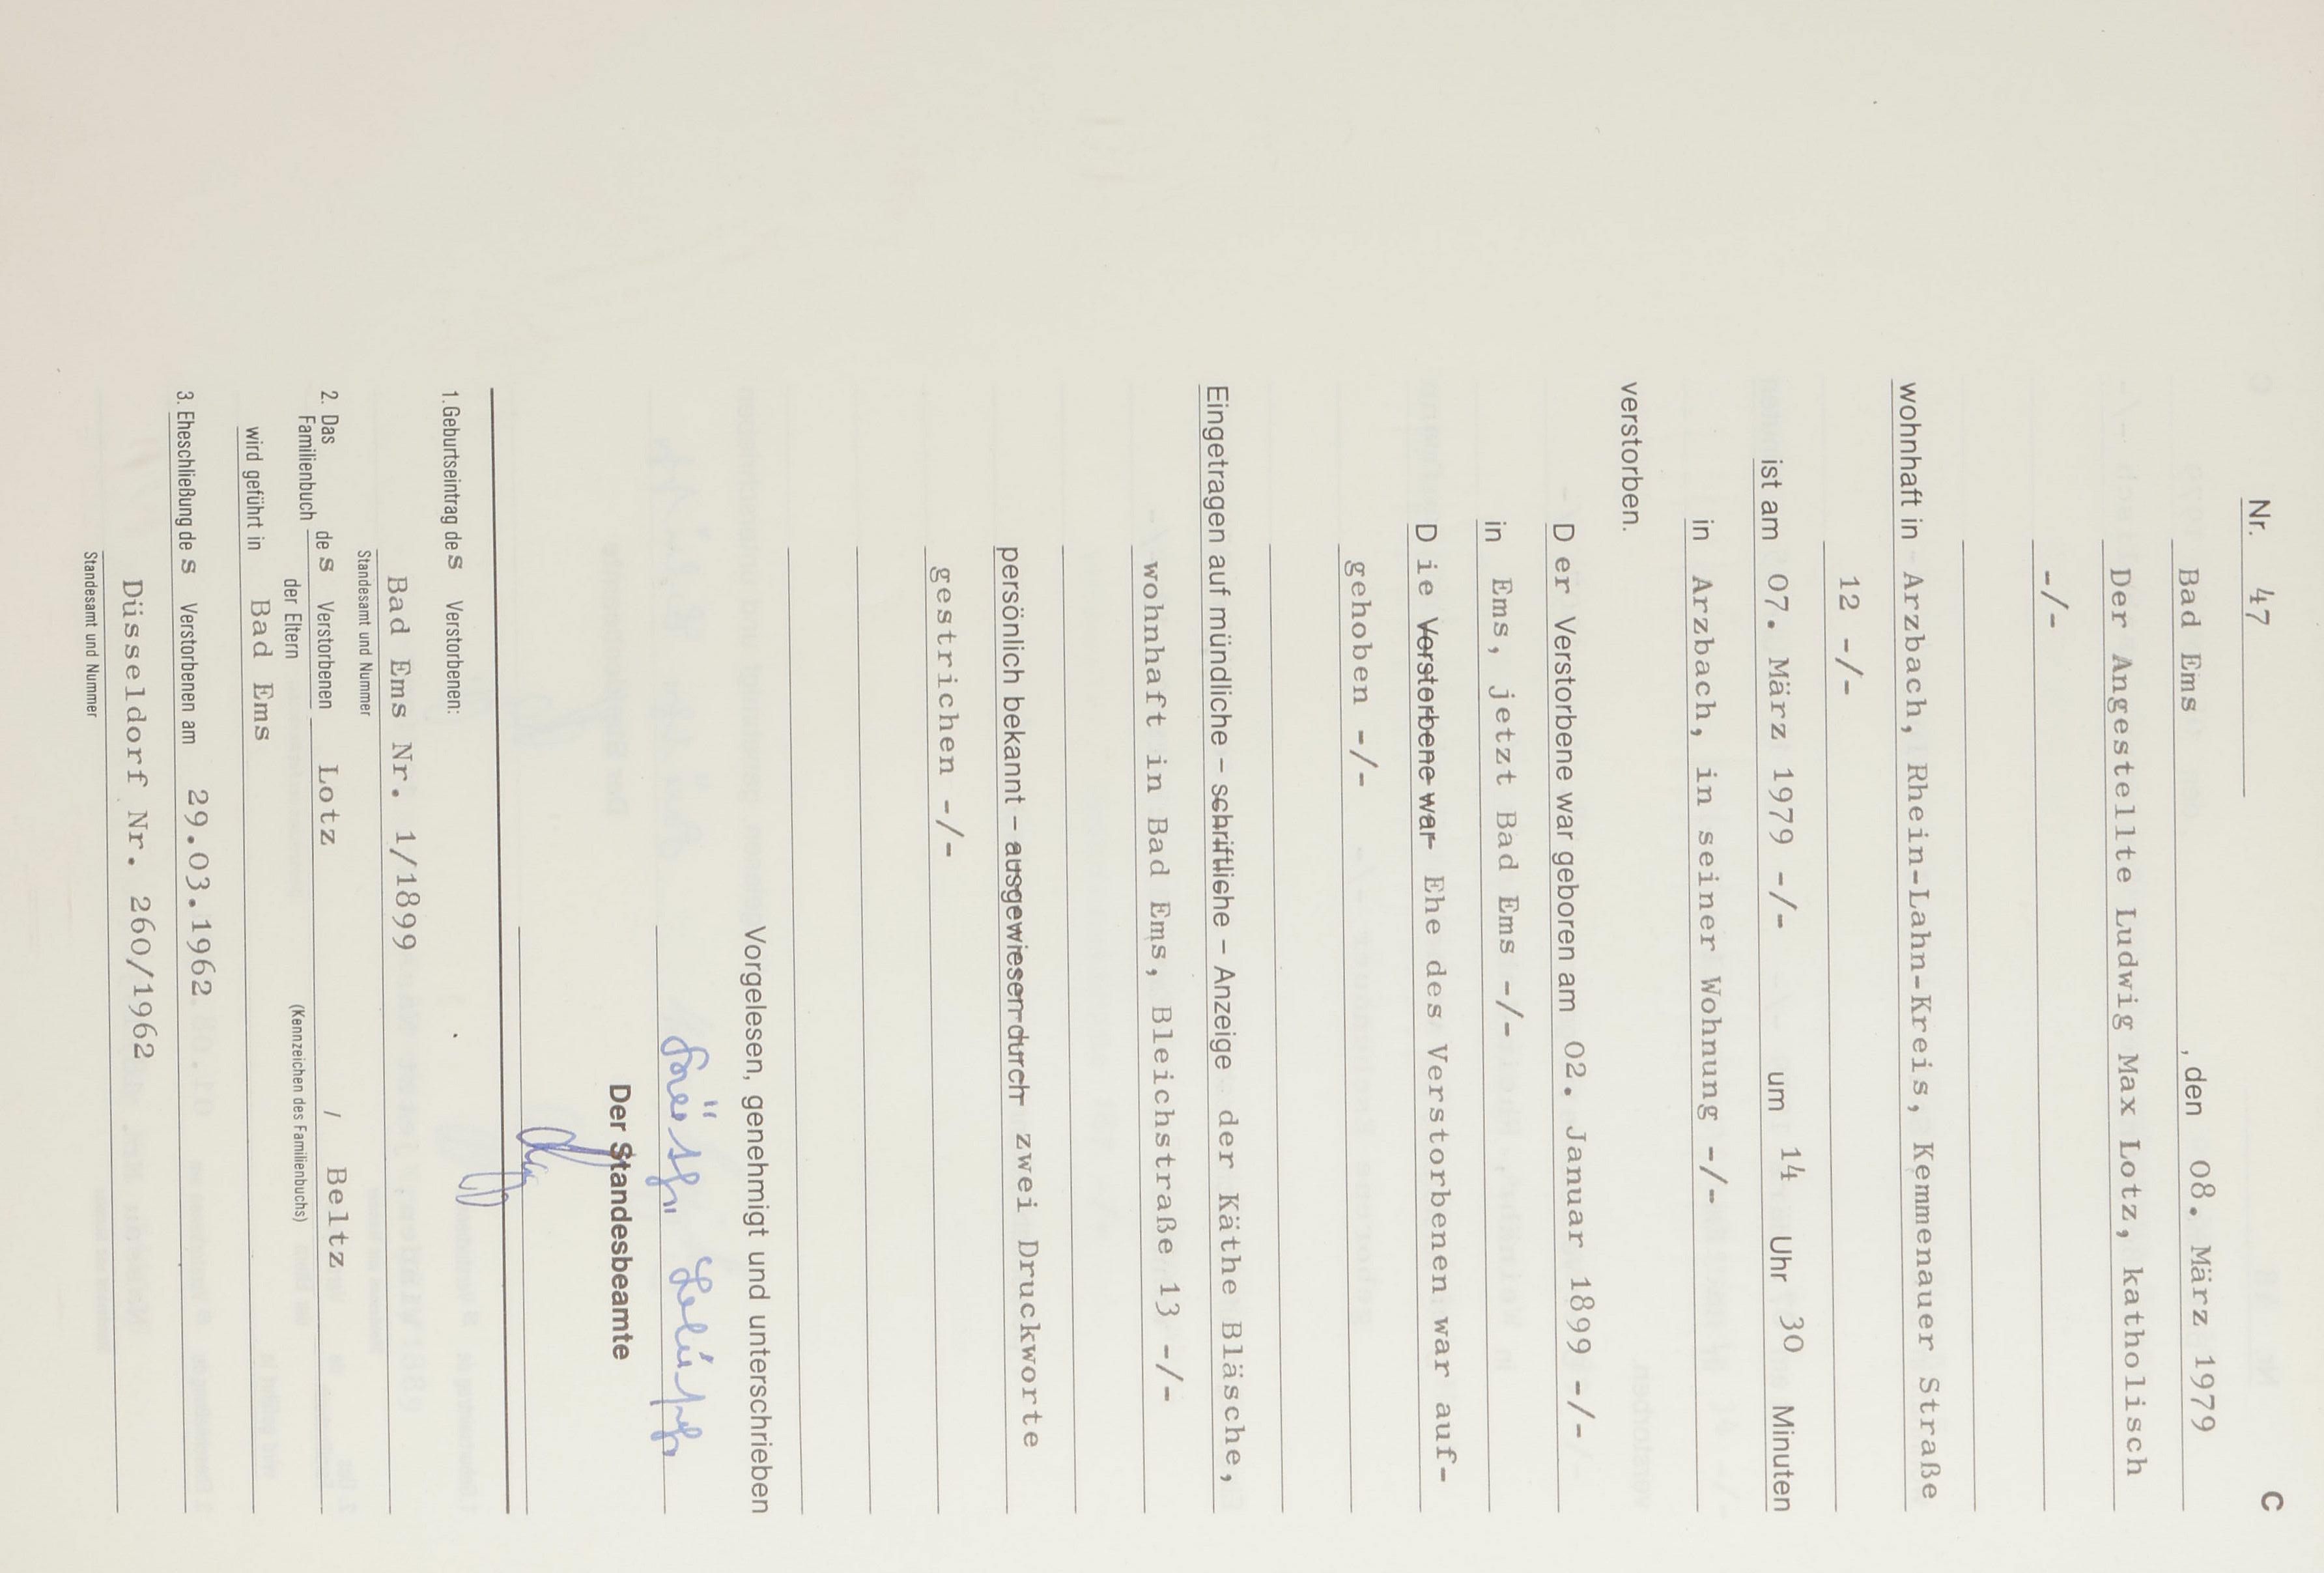 Nr. 47 C
Bad Ems , den 08. März 1979
Der Angestellte Ludwig Max Lotz, katholisch
-/-
wohnhaft in Arzbach, Rhein-Lahn-Kreis, Kemmenauer Straße
12 -/-
ist am 07. März 1979 -/- um 14 Uhr 30 Minuten
in Arzbach, in seiner Wohnung -/-
verstorben.
Der Verstorbene war geboren am 02. Januar 1899 -/-
in Ems, jetzt Bad Ems -/-
Die Verstorbene war Ehe des Verstorbenen war auf-
gehoben -/-
Eingetragen auf mündliche – schriftliche – Anzeige der Käthe Bläsche,
wohnhaft in Bad Ems, Bleichstraße 13 -/-
persönlich bekannt – ausgewiesen durch zwei Druckworte
gestrichen -/-
Vorgelesen, genehmigt und unterschrieben
Der Standesbeamte
1. Geburtseintrag des Verstorbenen:
Bad Ems Nr. 1/1899
Standesamt und Nummer
2. Das Familienbuch des Verstorbenen der Eltern Lotz / Beltz
(Kennzeichen des Familienbuchs)
wird geführt in Bad Ems
3. Eheschließung des Verstorbenen am 29.03.1962
Düsseldorf Nr. 260/1962
Standesamt und Nummer